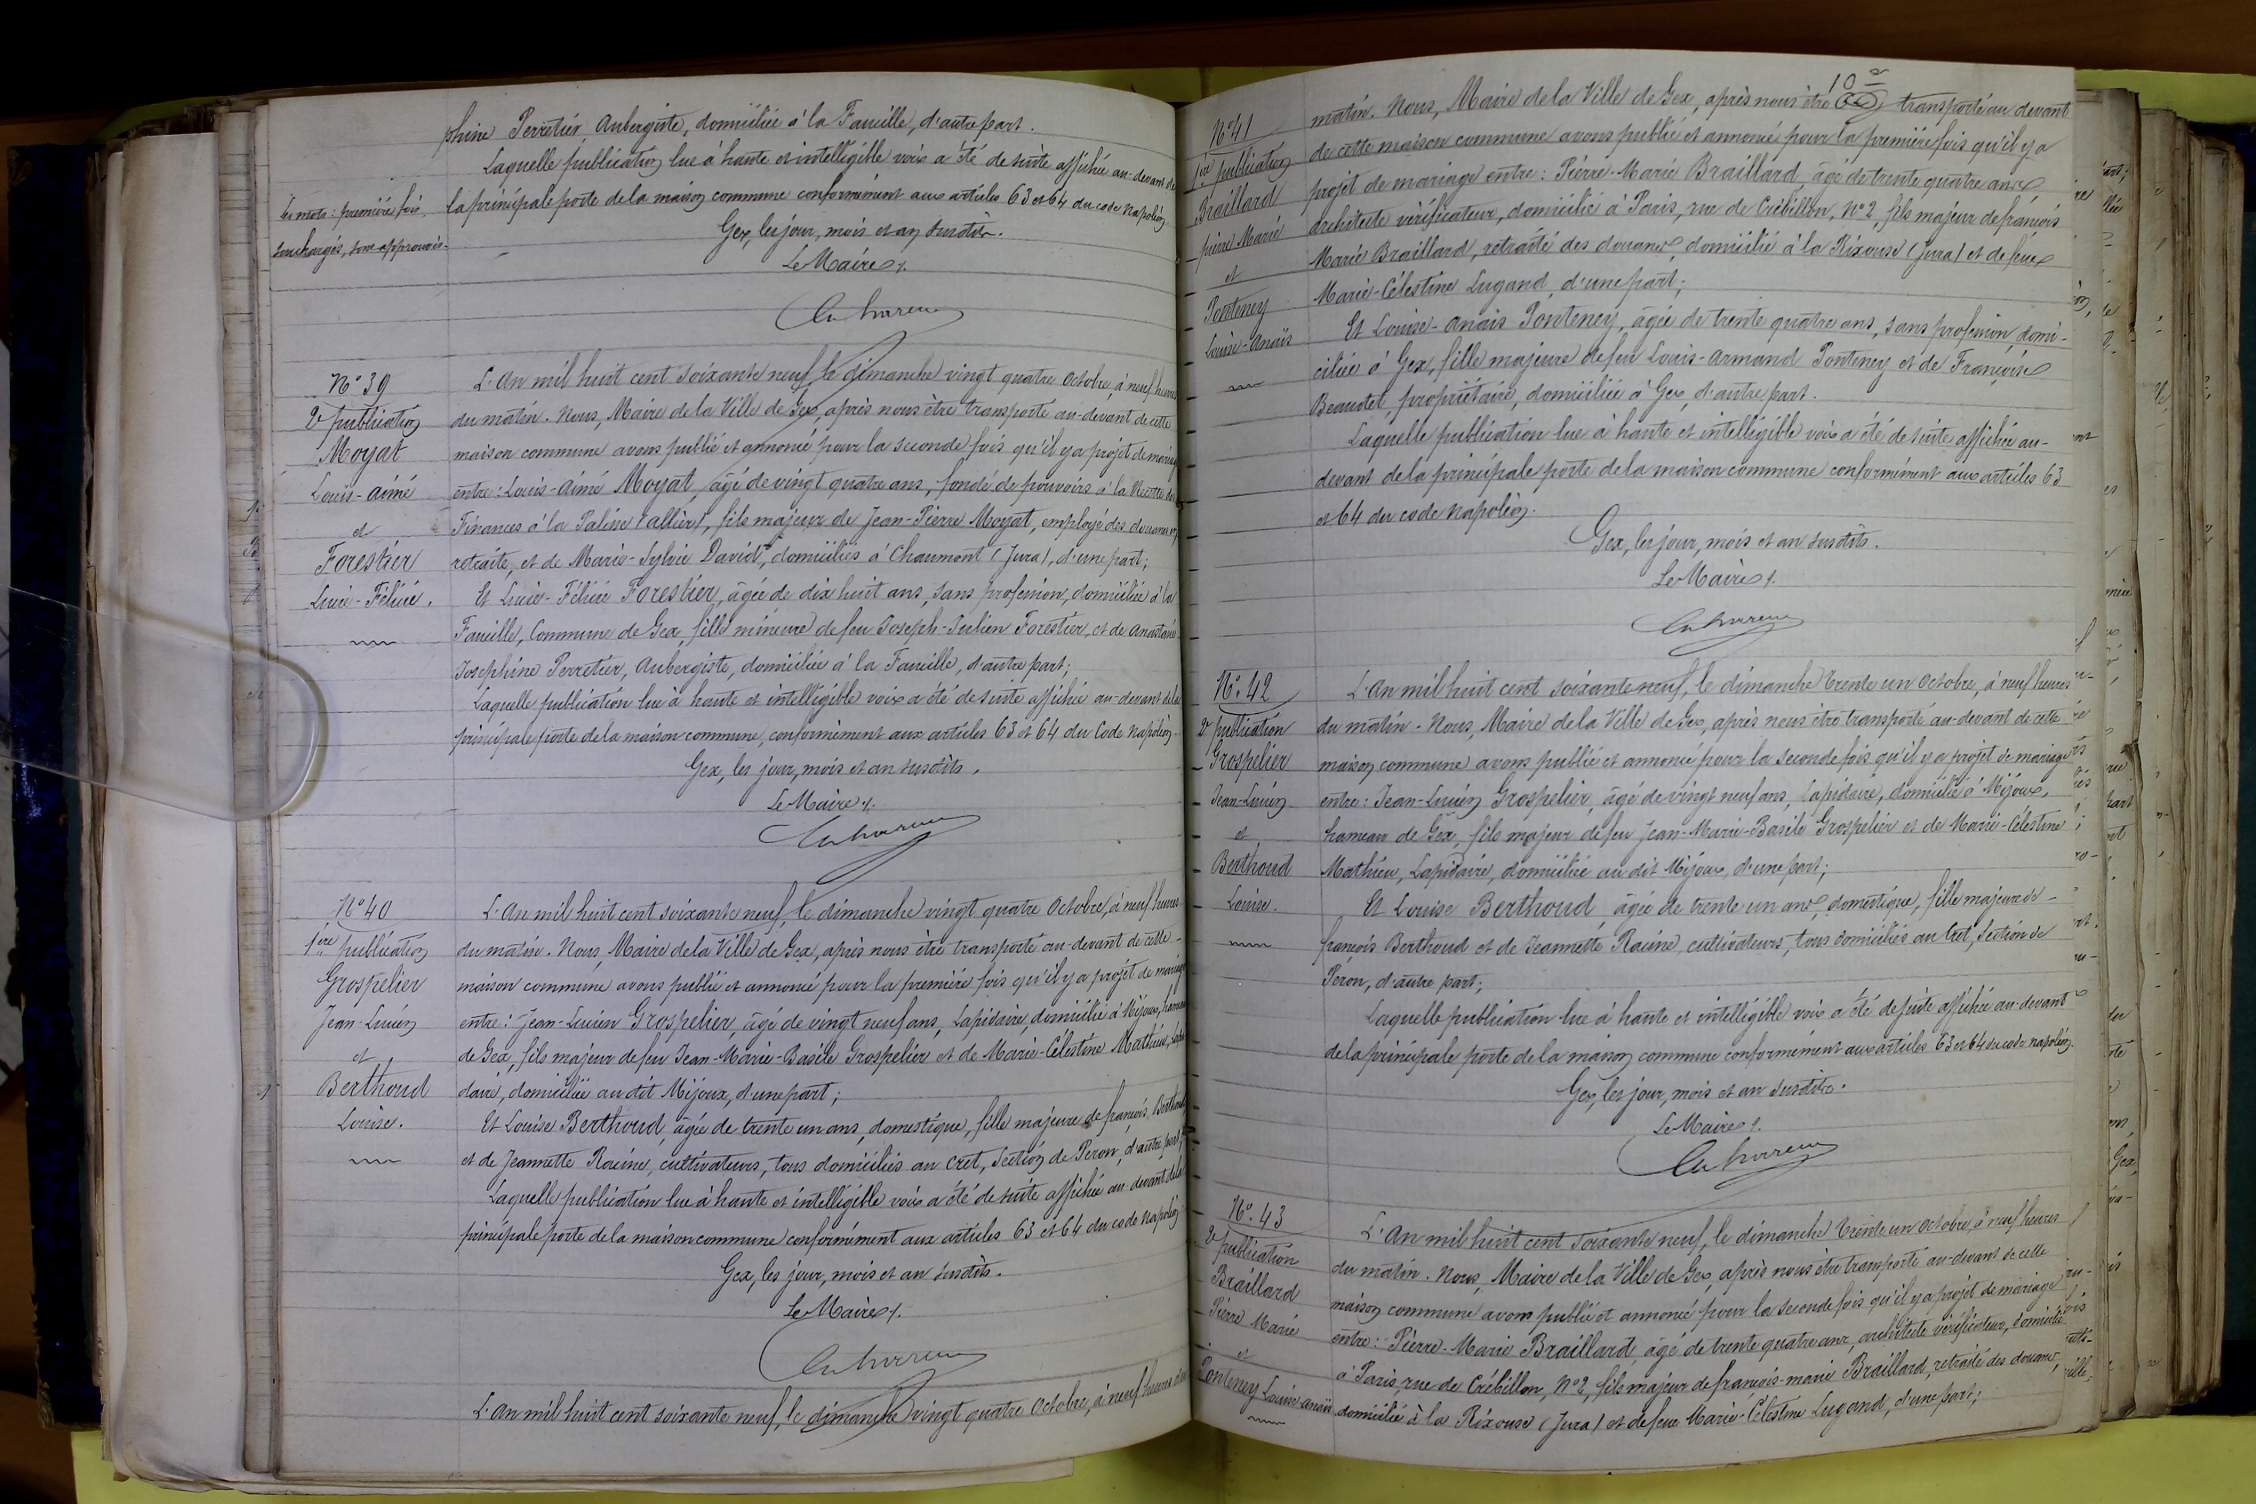 phine Perretier Aubergiste, domiciliée à la Faucille, d'autre part.
Laquelle publication lue à haute et intelligible voix a été de suite affichée au-devant de
la principale porte de la maison commune conformément aux articles 63 et 64 du code Napoléon
Gex, les jour, mois et an susdits.
Le Maire
Les mots : première fois
surchargés, sont approuvés
N° 39
2e publication
Moyat
Louis-Aimé
et
Forestier
Lucie-Félicie.
L'An mil huit cent soixante neuf, le dimanche vingt quatre Octobre, à neuf heures
du matin. Nous, Maire de la Ville de Gex, après nous être transporté au-devant de cette
maison commune avons publié et annoncé pour la seconde fois qu'il y a projet de mariage
entre : Louis-Aimé Moyat, âgé de vingt quatre ans, fondé de pouvoirs à la Recette des
Finances à la Palisse (Allier), fils majeur de Jean-Pierre Moyat, employé des douanes en
retraite, et de Marie-Sylvie David, domiciliés à Chaumont (Jura), d'une part;
Et Lucie-Félicie Forestier, âgée de dix huit ans, sans profession, domiciliée à la
Faucille, Commune de Gex, fille mineure de feu Joseph-Julien Forestier, et de Anastasie
Josephine Perretier, Aubergiste, domiciliée à la Faucille, d'autre part;
Laquelle publication lue à haute et intelligible voix a été de suite affichée au-devant de la
principale porte de la maison commune, conformément aux articles 63 et 64 du Code Napoléon.
Gex, les jour, mois et an susdits.
Le Maire
N° 40
1ère publication
Grospelier
Jean-Lucien
et
Berthoud
Louise.
L'An mil huit cent soixante neuf, le dimanche vingt quatre Octobre, à neuf heures
du matin. Nous, Maire de la Ville de Gex, après nous être transporté au-devant de cette
maison commune avons publié et annoncé pour la première fois qu'il y a projet de mariage
entre : Jean-Lucien Grospelier, âgé de vingt neuf ans, Lapidaire, domicilié à Mijoux, hameau
de Gex, fils majeur de feu Jean-Marie-Basile Grospelier et de Marie-Célestine Mathieu, Lapi
daire, domiciliée au dit Mijoux, d'une part;
Et Louise Berthoud, âgée de trente un ans, domestique, fille majeure de françois Berthoud
et de Jeannette Racine, cultivateurs, tous domiciliés au Cret, Section de Peron, d'autre part;
Laquelle publication lue à haute et intelligible voix a été de suite affichée au-devant de la
principale porte de la maison commune conformément aux articles 63 et 64 du code Napoléon
Gex, les jour, mois et an susdits.
Le Maire
L'An mil huit cent soixante neuf, le dimanche vingt quatre Octobre, à neuf heures du
10
N° 41
1ère publication
Braillard
pierre Marie
et
Ponteney
Louise-Anaïs
matin. Nous, Maire de la Ville de Gex, après nous être transporté au devant
de cette maison commune avons publié et annoncé pour la première fois qu'il y a
projet de mariage entre : Pierre-Marie Braillard, âgé de trente quatre ans
architecte vérificateur, domicilié à Paris, rue de Crébillon, N° 2, fils majeur de françois
Marie Braillard, retraité des douanes, domicilié à la Rixouse (Jura) et de feue
Marie-Célestine Lugand, d'une part;
Et Louise-Anaïs Ponteney, âgée de trente quatre ans, sans profession, domi-
ciliée à Gex, fille majeure de feu Louis-Armand Ponteney et de Françoise
Beaudet, propriétaire, domiciliée à Gex, d'autre part.
Laquelle publication lue à haute et intelligible voix a été de suite affichée au-
devant de la principale porte de la maison commune conformément aux articles 63
et 64 du code Napoléon.
Gex, les jour, mois et an susdits.
Le Maire
N° 42
2e publication
Grospelier
Jean-Lucien
et
Berthoud
Louise.
L'An mil huit cent soixante neuf, le dimanche trente un Octobre, à neuf heures
du matin. Nous, Maire de la Ville de Gex, après nous être transporté au-devant de cette
maison commune avons publié et annoncé pour la seconde fois qu'il y a projet de mariage
entre : Jean-Lucien Grospelier, âgé de vingt neuf ans, Lapidaire, domicilié à Mijoux,
hameau de Gex, fils majeur de feu Jean-Marie-Basile Grospelier et de Marie-Célestine
Mathieu, Lapidaire, domiciliée au dit Mijoux, d'une part;
Et Louise Berthoud âgée de trente un ans, domestique, fille majeure de
françois Berthoud et de Jeannette Racine, cultivateurs, tous domiciliés au Cret, Section de
Péron, d'autre part;
Laquelle publication lue à haute et intelligible voix a été de suite affichée au-devant
de la principale porte de la maison commune conformément aux articles 63 et 64 du code napoléon.
Gex, les jour, mois et an susdits.
Le Maire
N° 43
2e publication
Braillard
Pierre Marie
et
Ponteney Louise anaïs
L'An mil huit cent soixante neuf, le dimanche trente un Octobre, à neuf heures
du matin. Nous, Maire de la Ville de Gex, après nous être transporté au-devant de cette
maison commune avons publié et annoncé pour la seconde fois qu'il y a projet de mariage
entre : Pierre-Marie Braillard, âgé de trente quatre ans, architecte vérificateur, domicilié
à Paris, rue de Crébillon, N° 2, fils majeur de françois-marie Braillard, retraité des douanes,
domicilié à la Rixouse (Jura) et de feue Marie-Célestine Lugand, d'une part;